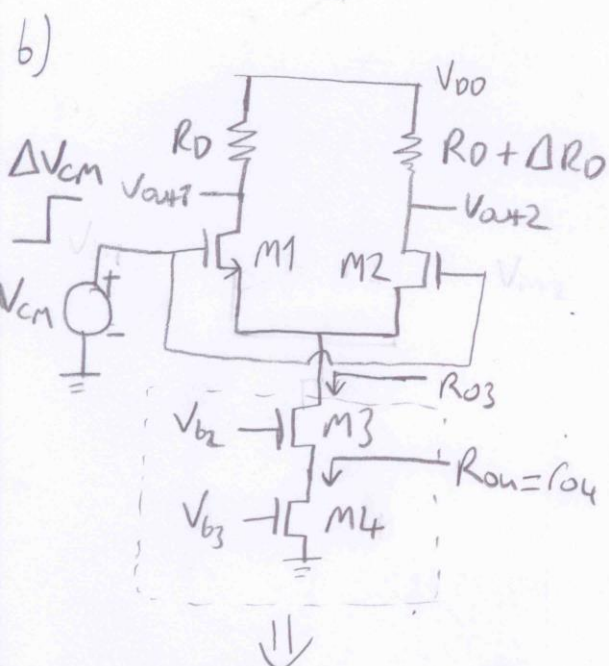 b)
VDD
RD
RD + ΔRD
ΔVCM
Vout1
Vout2
M1
M2
VCM
+
-
RO3
Vb2
M3
RO4=rO4
Vb3
M4